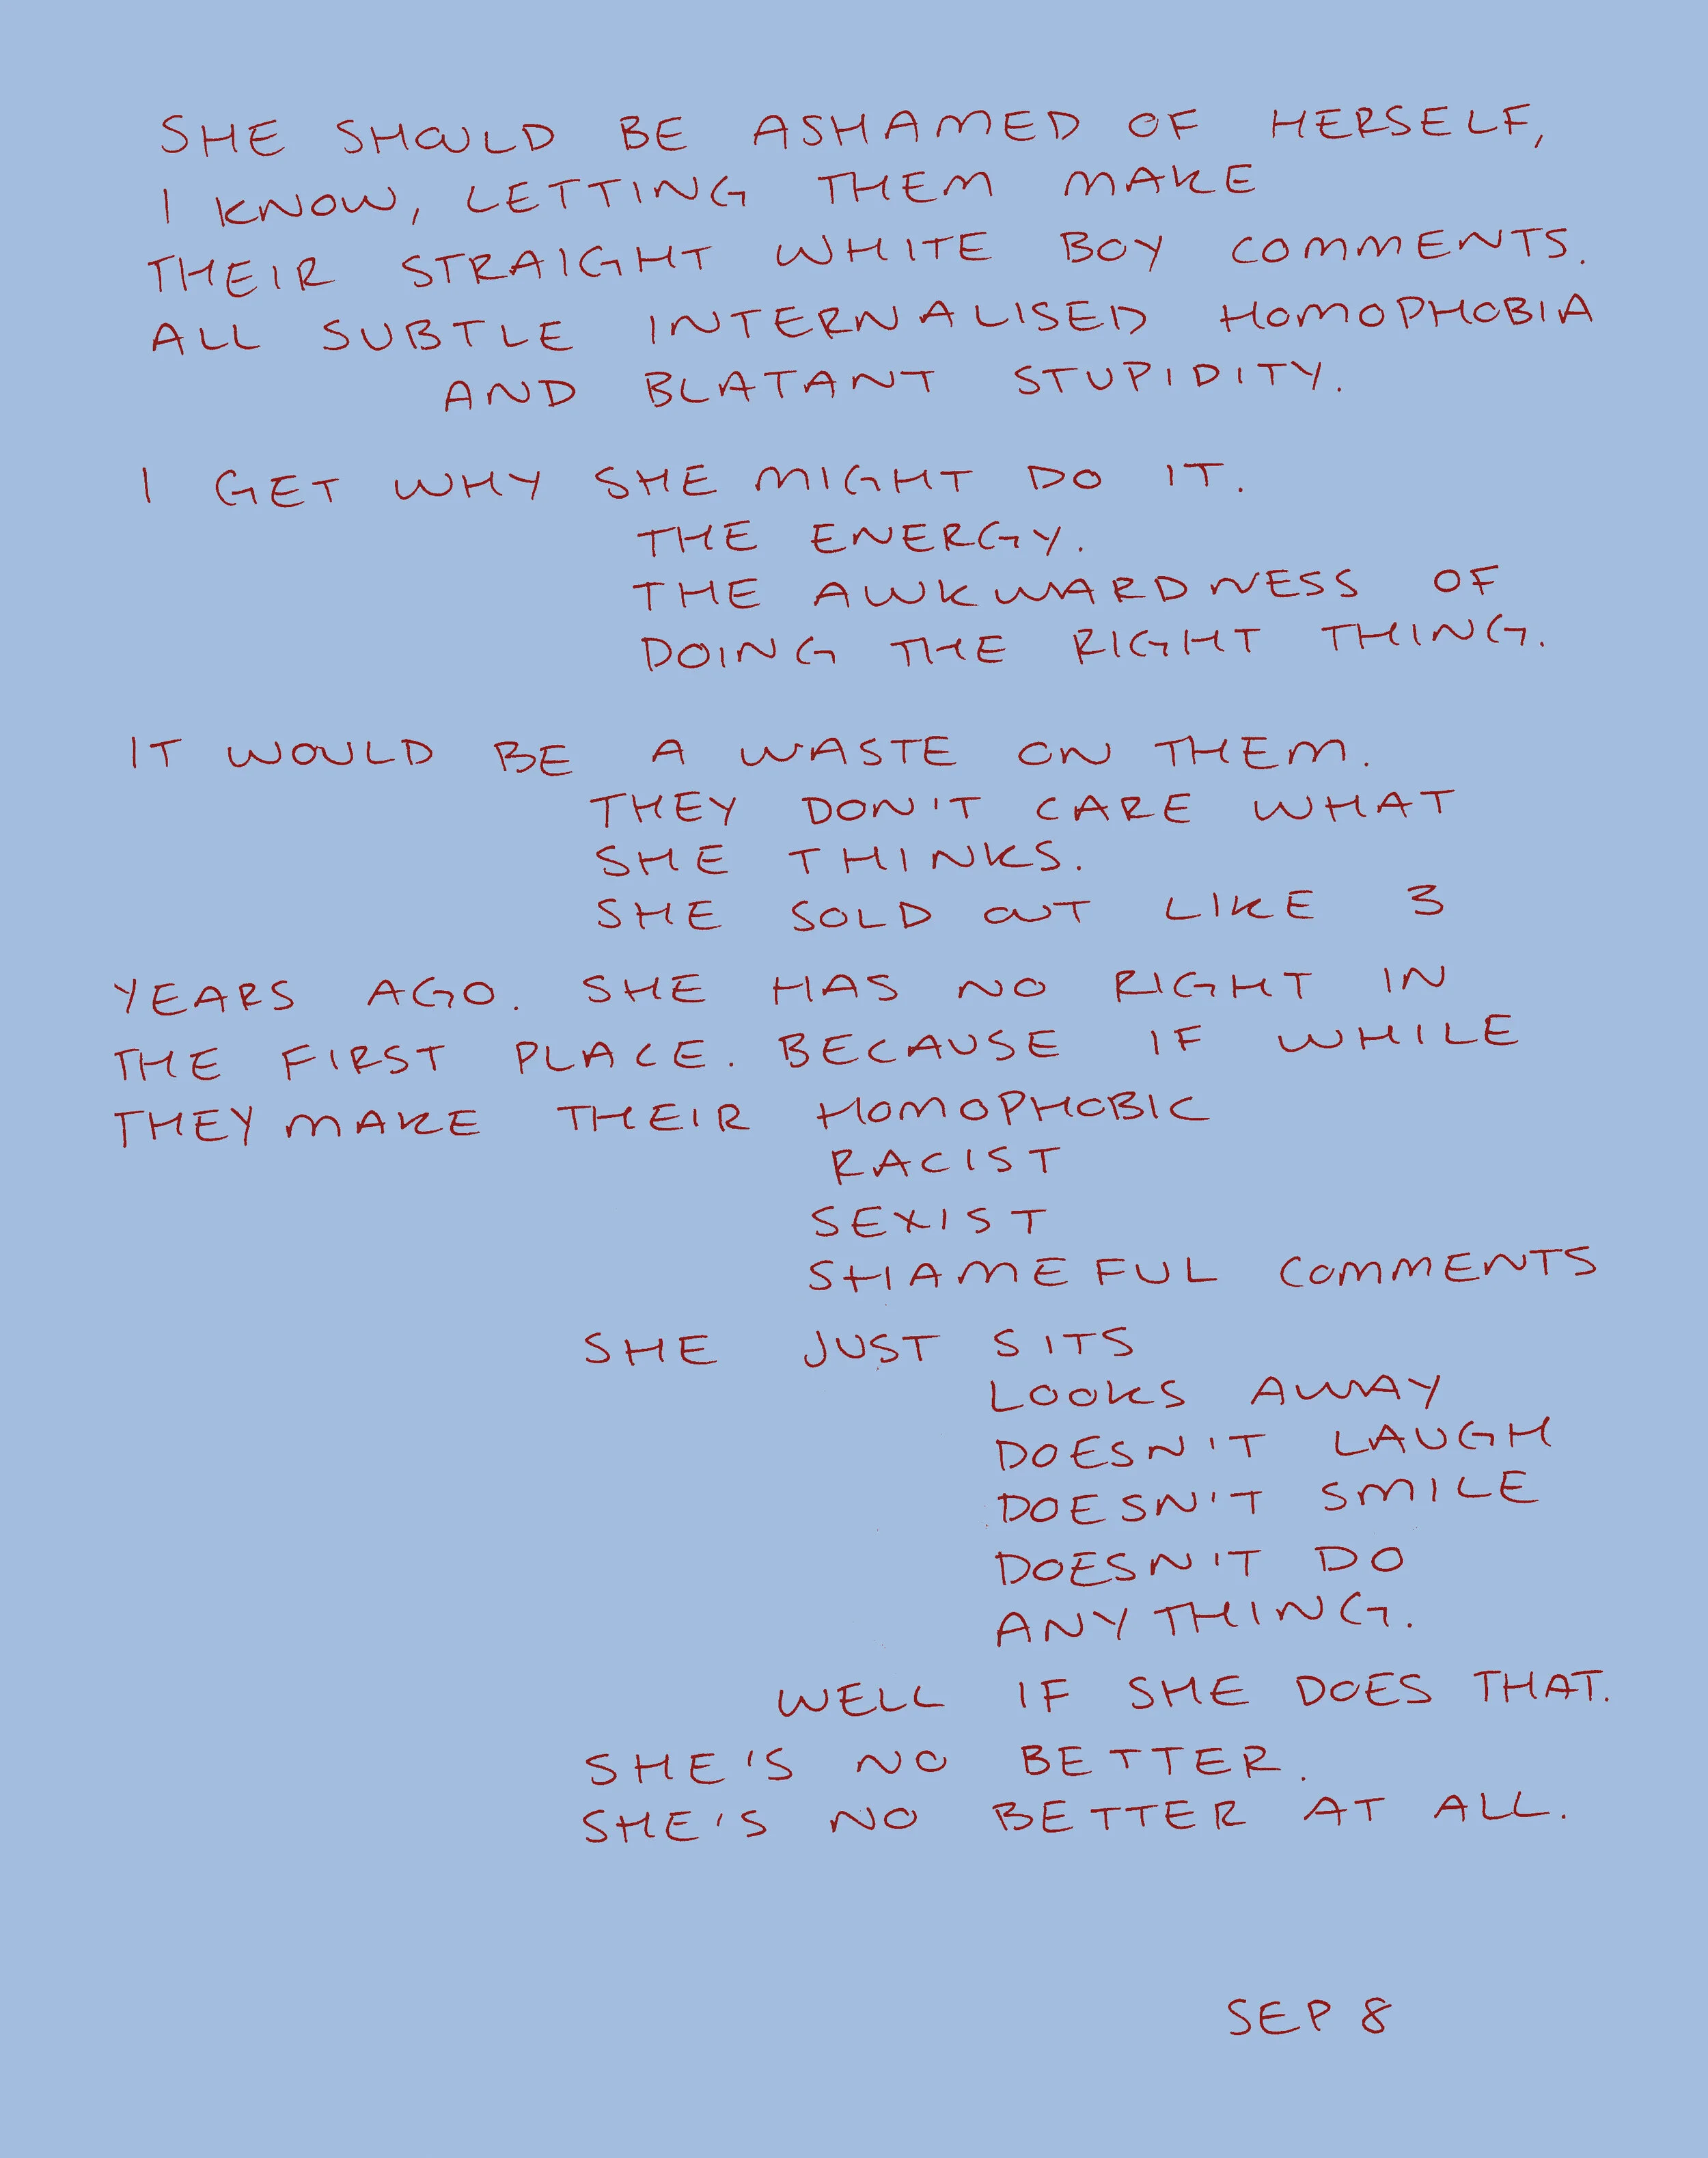 SHE SHOULD BE ASHAMED OF HERSELF,
I KNOW, LETTING THEM MAKE
THEIR STRAIGHT WHITE BOY COMMENTS.
ALL SUBTLE INTERNALISED HOMOPHOBIA
AND BLATANT STUPIDITY.
I GET WHY SHE MIGHT DO IT.
THE ENERGY.
THE AWKWARDNESS OF
DOING THE RIGHT THING.
IT WOULD BE A WASTE ON THEM.
THEY DON'T CARE WHAT
SHE THINKS.
SHE SOLD OUT LIKE 3
YEARS AGO. SHE HAS NO RIGHT IN
THE FIRST PLACE. BECAUSE IF WHILE
THEY MAKE THEIR HOMOPHOBIC
RACIST
SEXIST
SHAMEFUL COMMENTS
SHE JUST SITS
LOOKS AWAY
DOESN'T LAUGH
DOESN'T SMILE
DOESN'T DO
ANYTHING.
WELL IF SHE DOES THAT.
SHE'S NO BETTER.
SHE'S NO BETTER AT ALL.
SEP 8